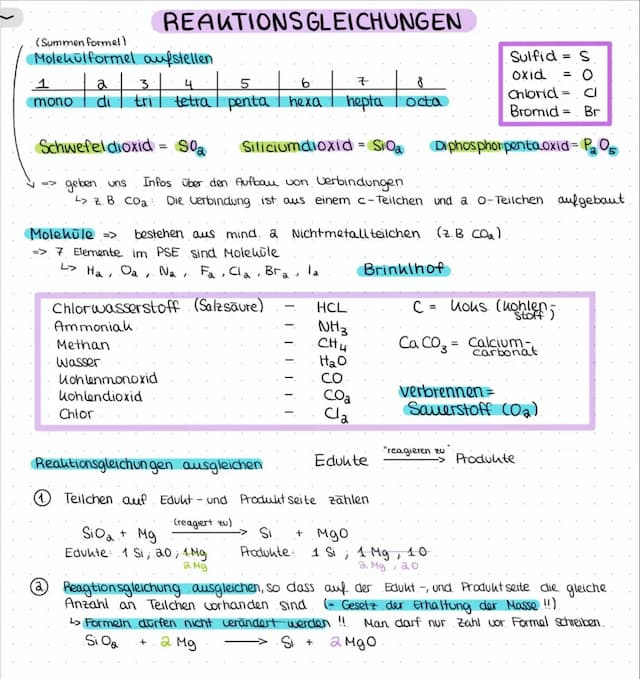 REAKTIONSGLEICHUNGEN
(Summenformel)
Molekülformel aufstellen
1 2 3 4 5 6 7 8
mono di tri tetra penta hexa hepta octa
Sulfid = S
oxid = O
Chlorid = Cl
Bromid = Br
Schwefeldioxid = SO₂ Siliciumdioxid = SiO₂ Diphosphorpentaoxid = P₂O₅
=> geben uns Infos über den Aufbau von Verbindungen
↳ z.B CO₂: Die Verbindung ist aus einem C-Teilchen und 2 O-Teilchen aufgebaut
Moleküle => bestehen aus mind. 2 Nichtmetallteilchen (z.B CO₂)
=> 7 Elemente im PSE sind Moleküle
↳ H₂, O₂, N₂, F₂, Cl₂, Br₂, I₂ Brinklhof
Chlorwasserstoff (Salzsäure) – HCL
Ammoniak – NH₃
Methan – CH₄
Wasser – H₂O
Kohlenmonoxid – CO
Kohlendioxid – CO₂
Chlor – Cl₂
C = Koks (Kohlen-
stoff)
CaCO₃ = Calcium-
carbonat
verbrennen =
Sauerstoff (O₂)
Reaktionsgleichungen ausgleichen Edukte "reagieren zu" → Produkte
① Teilchen auf Edukt- und Produktseite zählen
SiO₂ + Mg (reagert zu) → Si + MgO
Edukte: 1 Si, 2O, 1Mg Produkte: 1 Si, 1 Mg, 1O
2Mg 2Mg, 2O
② Reagtionsgleichung ausgleichen, so dass auf der Edukt-, und Produktseite die gleiche
Anzahl an Teilchen vorhanden sind (= Gesetz der Erhaltung der Masse!!)
↳ Formeln dürfen nicht verändert werden!! Man darf nur Zahl vor Formel schreiben.
SiO₂ + 2 Mg → Si + 2 MgO